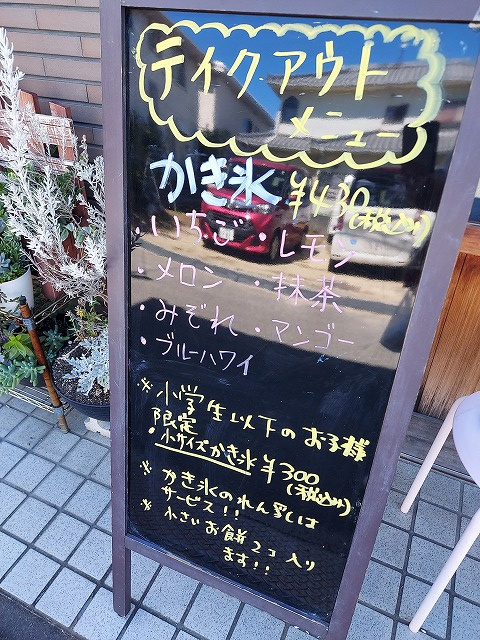 テイクアウト
メニュー
かき氷 ¥430(税込り)
・いちご ・レモン
・メロン ・抹茶
・みぞれ ・マンゴー
・ブルーハワイ
※小学生以下のお子様
限定
・小サイズかき氷 ¥300
(税込り)
※かき氷のれん乳は
サービス!!
※小さいお餅2コ入り
ます!!